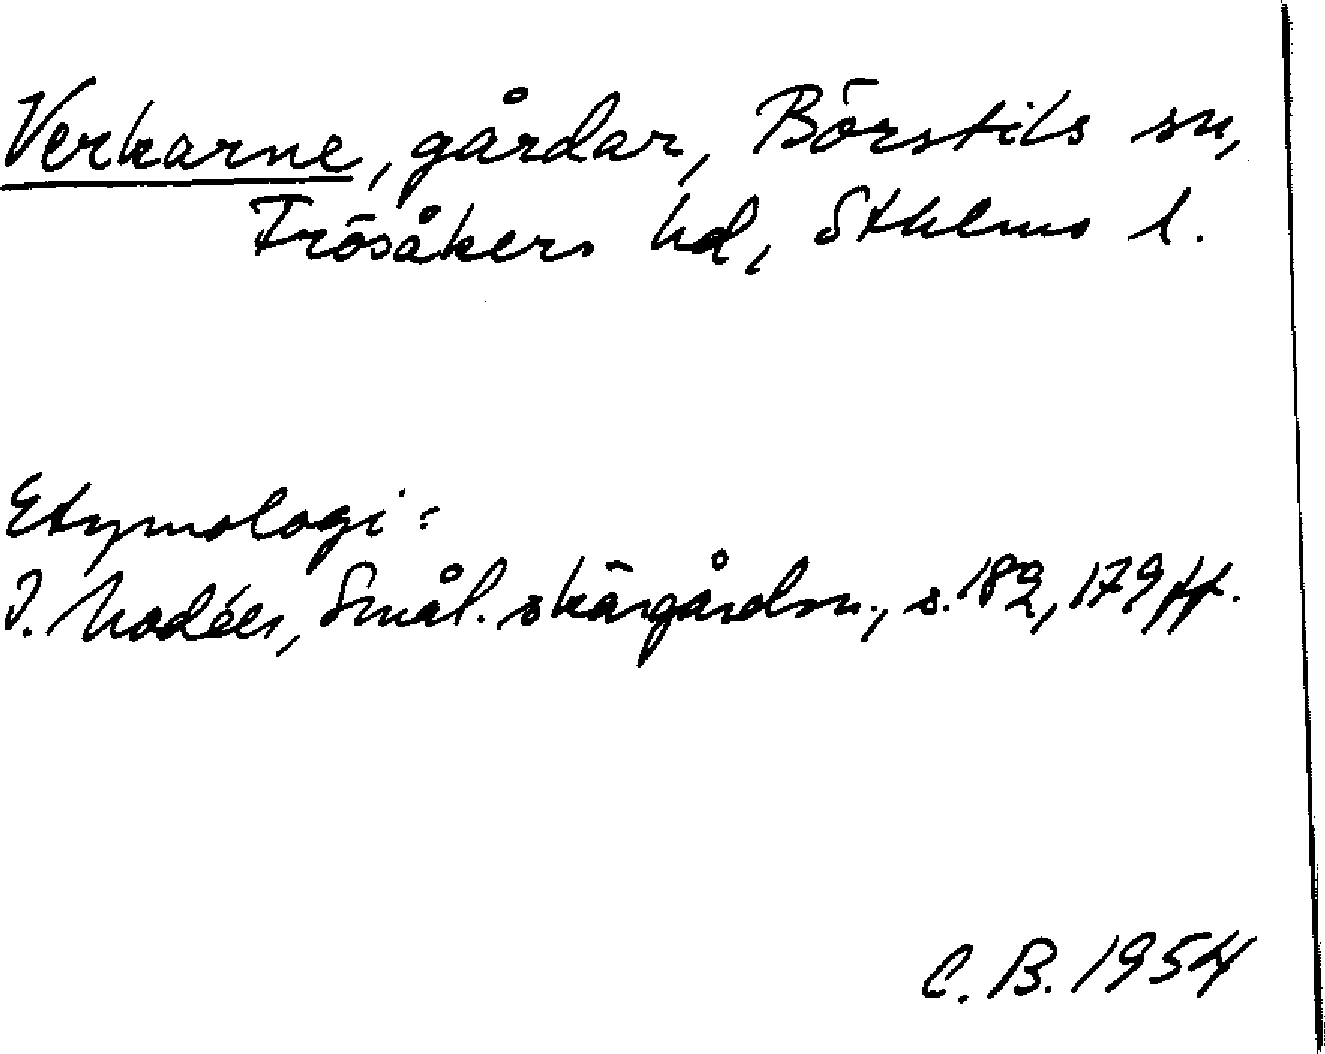 Verkarne, gårdar, Börstils sn,
Frösåkers hd, Sthlms l.
Etymologi:
I. Modéer, Smål. skärgårdsn., s. 182, 179 ff.
C. B. 1954